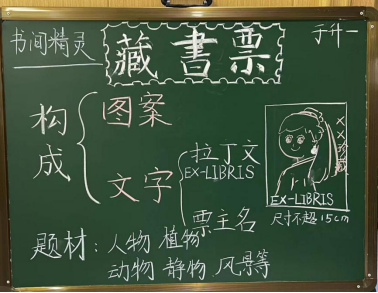 书间精灵
藏書票
于升一
构成
图案
文字
拉丁文
EX-LIBRIS
票主名
XX珍藏
EX-LIBRIS
尺寸不超15cm
题材:人物 植物
动物 静物 风景等